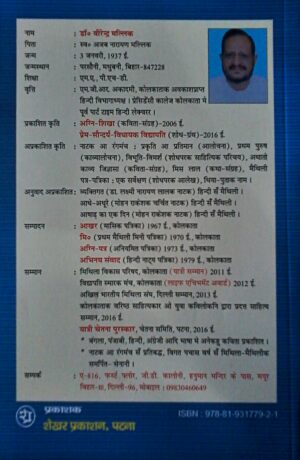 नाम : डॉ० वीरेन्द्र मल्लिक
पिता : स्व० अजब नारायण मल्लिक
जन्म : 3 जनवरी, 1937 ई.
जन्मस्थान : परसौनी, मधुबनी, बिहार-847228
शिक्षा : एम.ए., पी.एच-डी.
वृत्ति : एम.जी.आर. अकादमी, कोलकाताक अवकाशप्राप्त
हिन्दी विभागाध्यक्ष। प्रेसिडेंसी कालेज कोलकाता मे
पूर्व पार्ट टाइम हिन्दी लेक्चरर।
प्रकाशित कृति : अग्नि-शिखा (कविता-संग्रह)-2006 ई.
प्रेम-सौन्दर्य-विधायक विद्यापति (शोध-ग्रंथ)-2016 ई.
अप्रकाशित कृति : नाटक आ रंगमंच : प्रकृति आ प्रतिमान (आलोचना), प्रथम पुरुष
(काव्यालोचना), विभूति-विमर्श (शोधपरक साहित्यिक परिचय), अथातो
काव्य जिज्ञासा (कविता-संग्रह), मिस लाल (कथा-संग्रह), मैथिली
पत्र-पत्रिका : एक सर्वेक्षण (शोधपरक आलेख), मिथा-पुराक नाम।
अनुवाद अप्रकाशित : व्यक्तिगत (डा. लक्ष्मी नारायण लालक नाटक) हिन्दी सँ मैथिली।
आधे-अधूरे (मोहन राकेशक चर्चित नाटक) हिन्दी सँ मैथिली।
आषाढ़ का एक दिन (मोहन राकेशक नाटक) हिन्दी सँ मैथिली।
सम्पादन : आखर (मासिक पत्रिका) 1967 ई., कोलकाता
मि० (प्रथम मैथिली मिनी पत्रिका) 1970 ई., कोलकाता
अग्नि-पत्र (अनियमित पत्रिका) 1973 ई., कोलकाता
अभिनय संवाद (हिन्दी नाट्य पत्रिका) 1979 ई., कोलकाता
सम्मान : मिथिला विकास परिषद, कोलकाता (यात्री सम्मान) 2011 ई.
विद्यापति स्मारक मंच, कोलकाता (लाइफ एचिभमेंट अवार्ड) 2012 ई.
अखिल भारतीय मिथिला संघ, दिल्ली सम्मान, 2013 ई.
कोलकाताक वरिष्ठ साहित्यकार ओ युवा कविलोकनि द्वारा प्रदत्त साहित्य
सम्मान, 2016 ई.
यात्री चेतना पुरस्कार, चेतना समिति, पटना, 2016 ई.
* बंगला, पंजाबी, हिन्दी, अंग्रेजी आदि भाषा मे अनेकहु कविता प्रकाशित।
* नाटक आ रंगमंच सँ प्रतिबद्ध, विगत पचास वर्ष सँ मिथिला-मैथिलीक
समर्पित- सेनानी।
सम्पर्क : ए-816, फर्स्ट फ्लोर, जी.डी. कालोनी, हनुमान मन्दिर के पास, मयूर
बिहार-III, दिल्ली-96, मोबाइल : 09830460649
प्रकाशक
शेखर प्रकाशन, पटना
ISBN : 978-81-931779-2-1